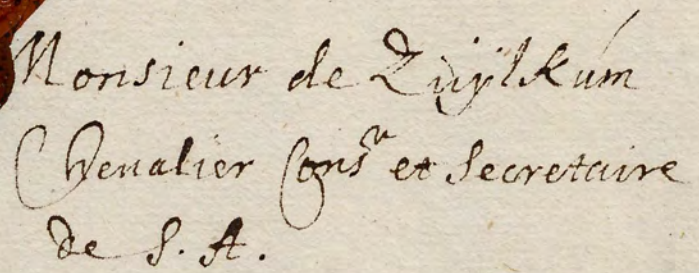 Monsieur de Zuÿlkúm
Chevalier Cons.r et Secretaire
de S. A.